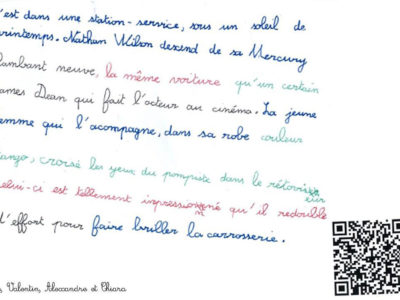 'est dans une station-service, sous un soleil de
rintemps. Nathan Wilson descend de sa Mercury
lambant neuve, la même voiture qu'un certain
ames Dean qui fait l'acteur au cinéma. La jeune
emme qui l'accompagne, dans sa robe couleur
tango, croise les yeux du pompiste dans le rétoviseur
elui-ci est tellement impressionné qu'il redouble
d'effort pour faire briller la carrosserie.
, Valentin, Alessandro et Chiara